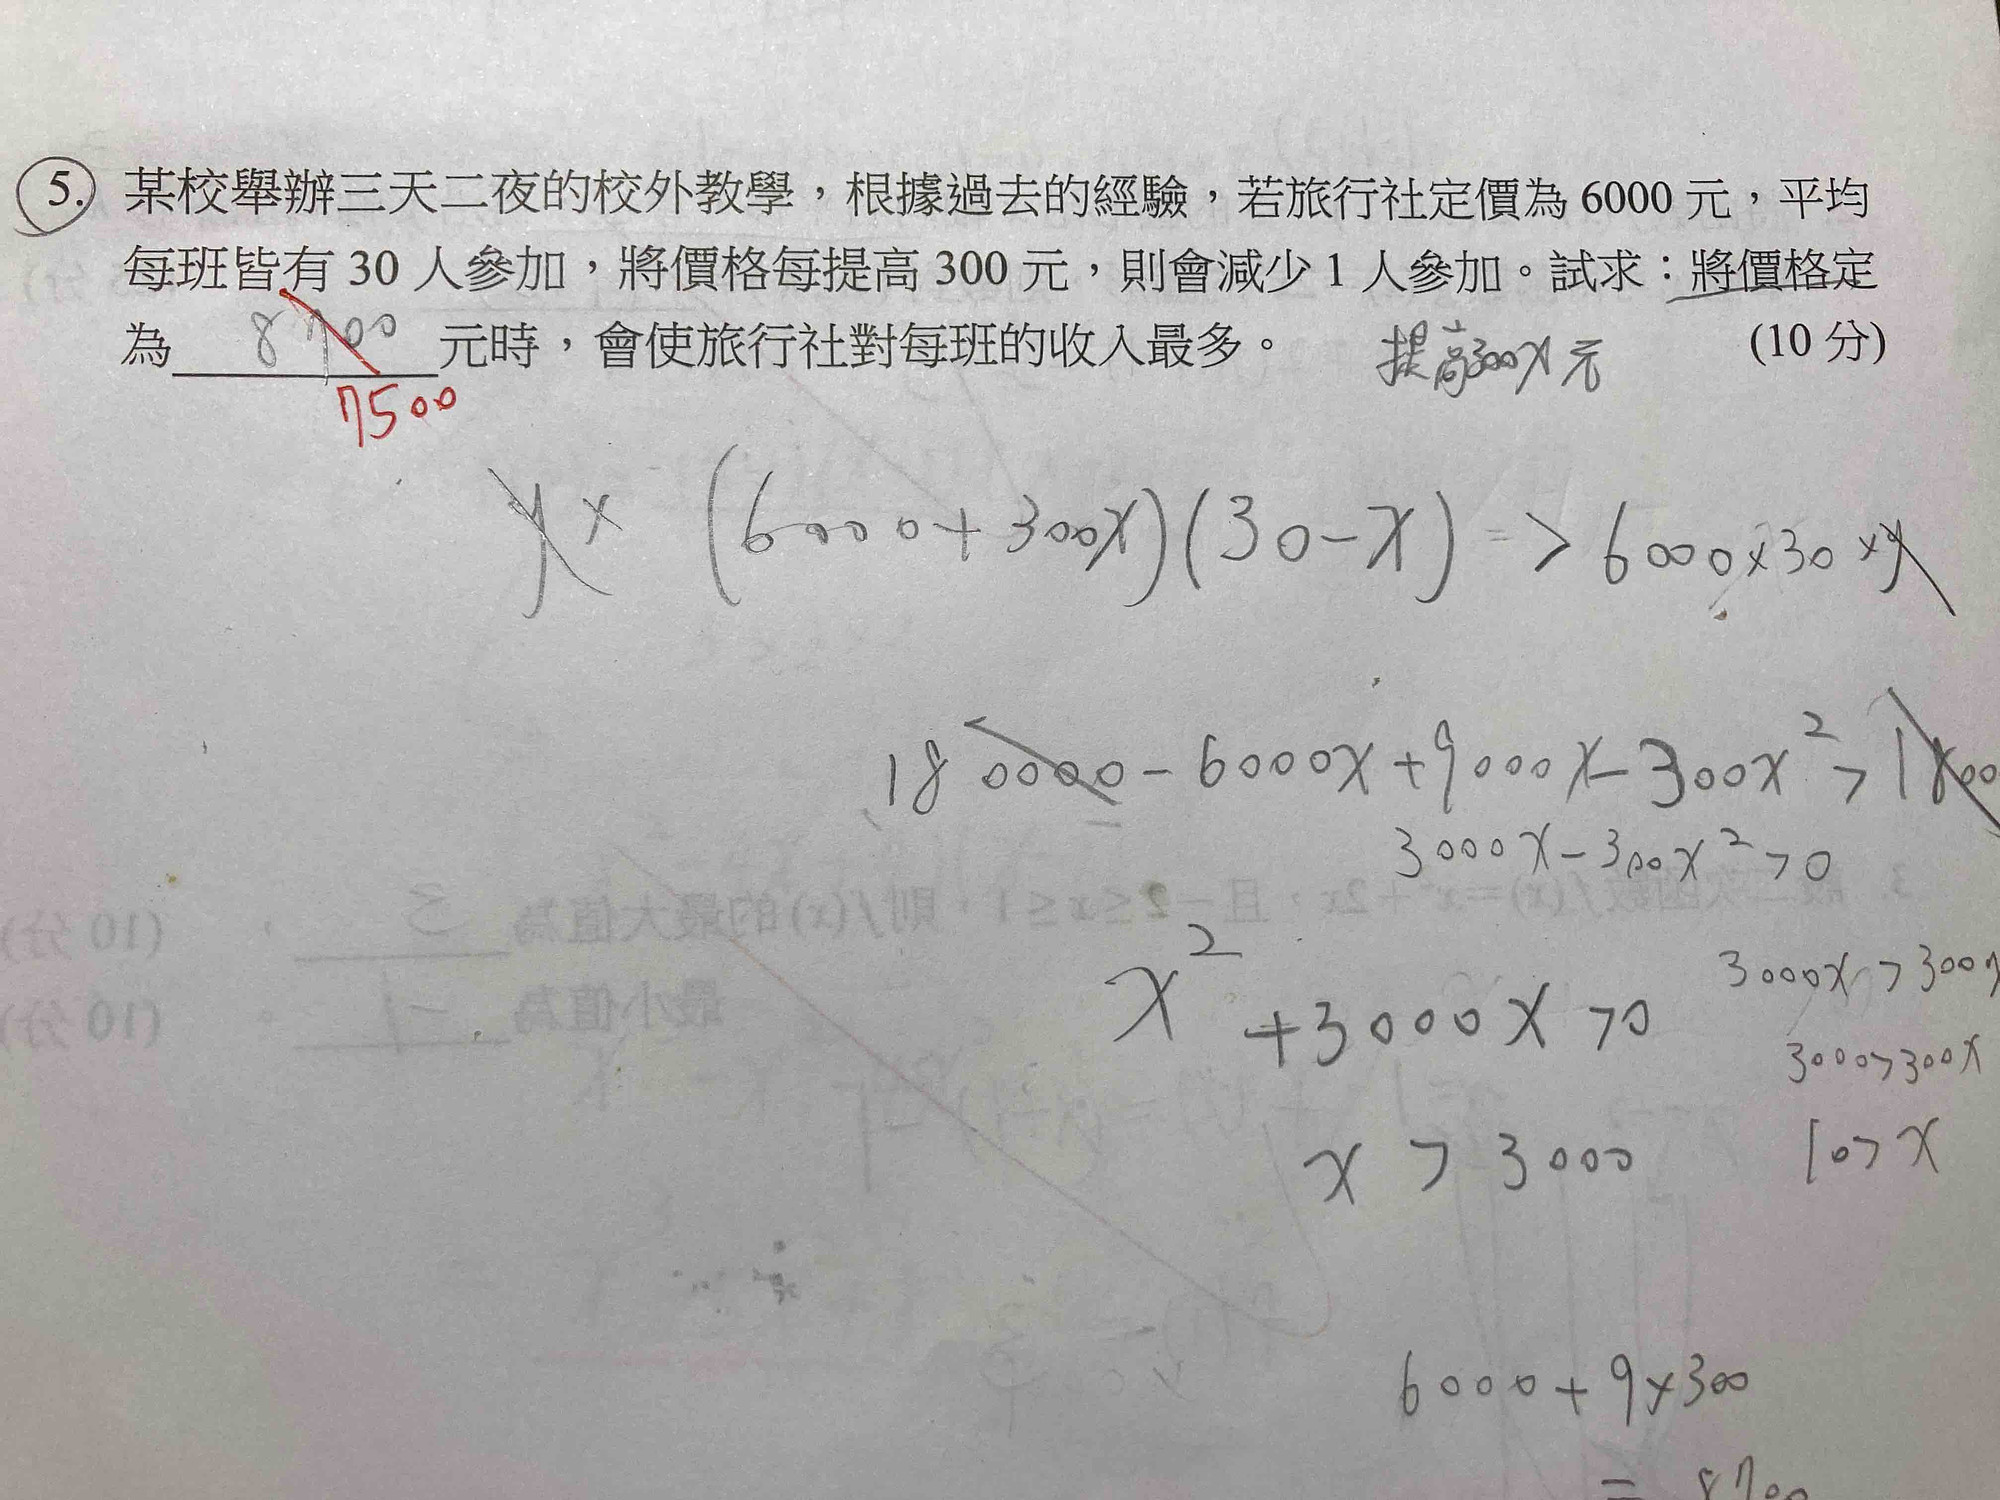 5. 某校舉辦三天二夜的校外教學，根據過去的經驗，若旅行社定價為 6000 元，平均
每班皆有 30 人參加，將價格每提高 300 元，則會減少 1 人參加。試求：將價格定
為 8700 元時，會使旅行社對每班的收入最多。 (10 分)
7500
提高300x元
y× (6000+300x)(30-x) > 6000×30×y
180000-6000x+9000x-300x² > 18000
3000x-300x²>0
x²+3000x>0
3000x>300x
3000>300x
x > 3000
10>x
6000+9×300
= 8700
3. 設二次函數 f(x)=x²+2x，且-2≤x≤1，則 f(x) 的最大值為 3 ， (10 分)
最小值為 -1 。 (10 分)